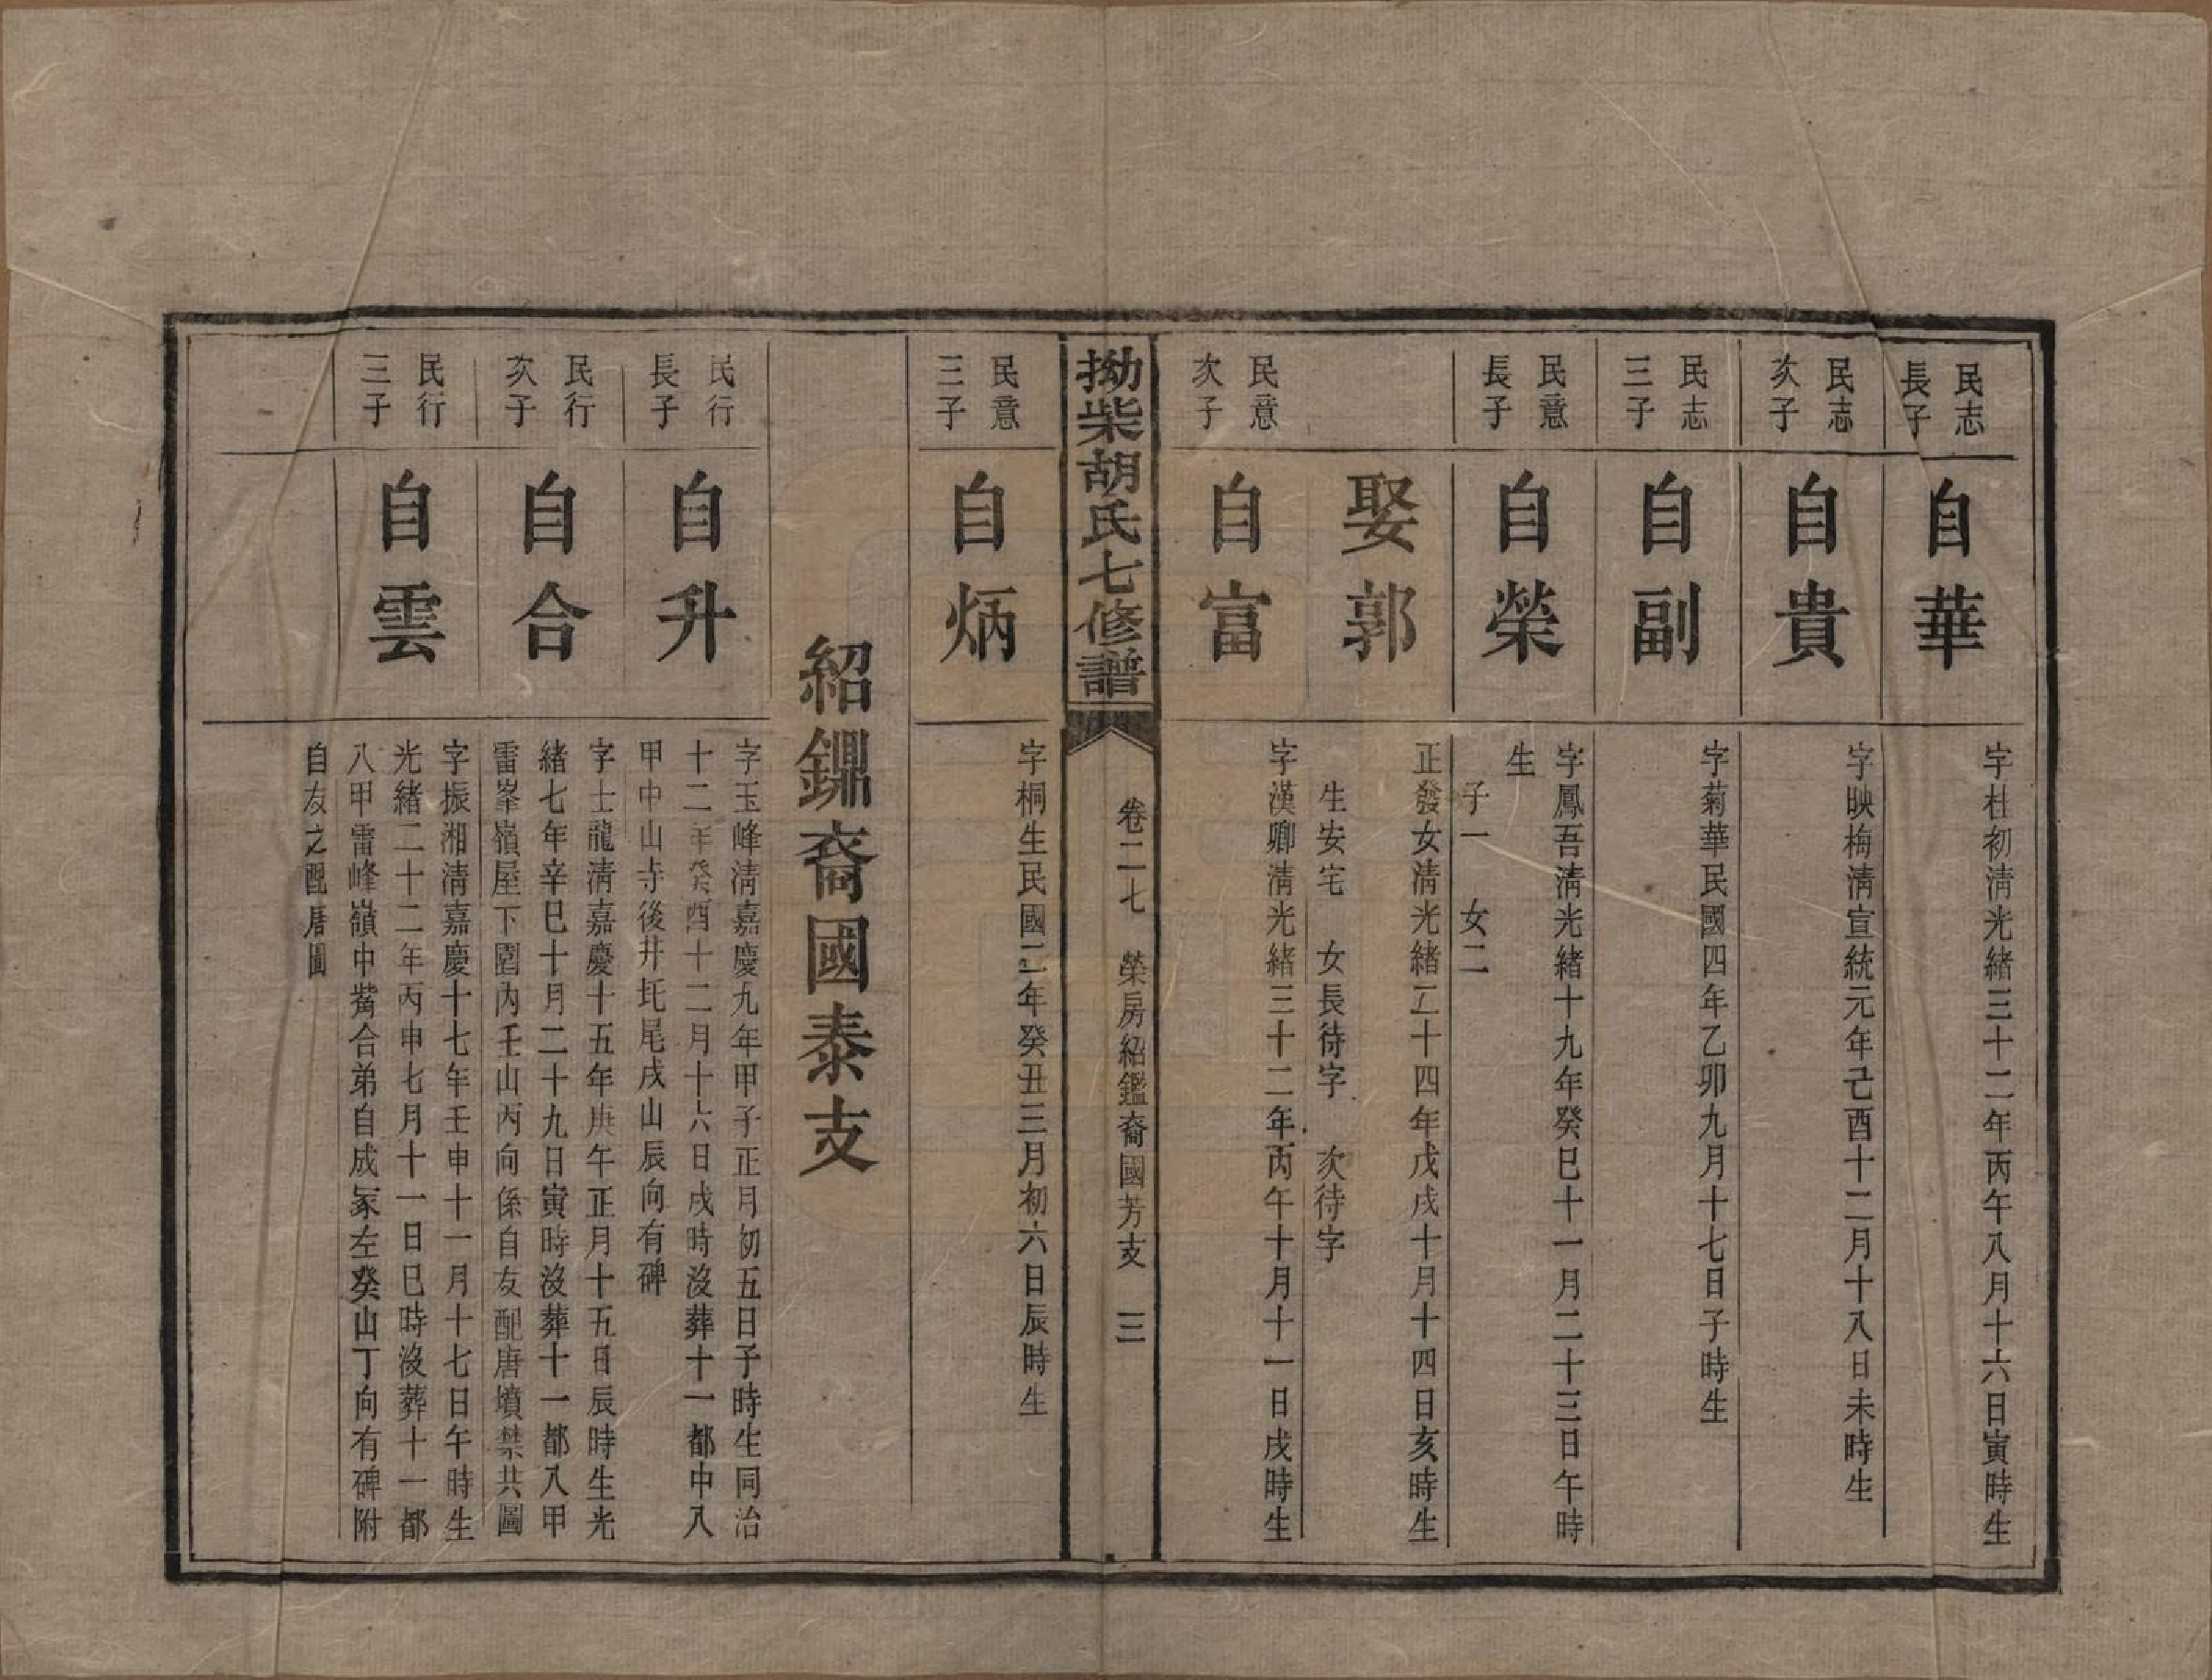 民志
長子
自華
字桂初淸光緒三十二年丙午八月十六日寅時生
民志
次子
自貴
字映梅淸宣統元年己酉十二月十八日未時生
民志
三子
自副
字菊華民國四年乙卯九月十七日子時生
民意
長子
自榮
字鳳吾淸光緒十九年癸巳十一月二十三日午時
生
子一 女二
娶郭
正發女淸光緒二十四年戊戌十月十四日亥時生
生安宅 女長待字 次待字
民意
次子
自富
字漢卿淸光緒三十二年丙午十月十一日戌時生
拗柴胡氏七修譜
卷二七 榮房紹鑑裔國芳支 三
民意
三子
自炳
字桐生民國二年癸丑三月初六日辰時生
紹鐤裔國泰支
民行
長子
自升
字玉峰淸嘉慶九年甲子正月初五日子時生同治
十二年癸酉十二月十六日戌時沒葬十一都中八
甲中山寺後井托尾戌山辰向有碑
民行
次子
自合
字士龍淸嘉慶十五年庚午正月十五日辰時生光
緒七年辛巳十月二十九日寅時沒葬十一都八甲
雷峯嶺屋下園內壬山丙向係自友配唐墳禁共圖
民行
三子
自雲
字振湘淸嘉慶十七年壬申十一月十七日午時生
光緒二十二年丙申七月十一日巳時沒葬十一都
八甲雷峰嶺中嘴合弟自成冢左癸山丁向有碑附
自友之配唐圖